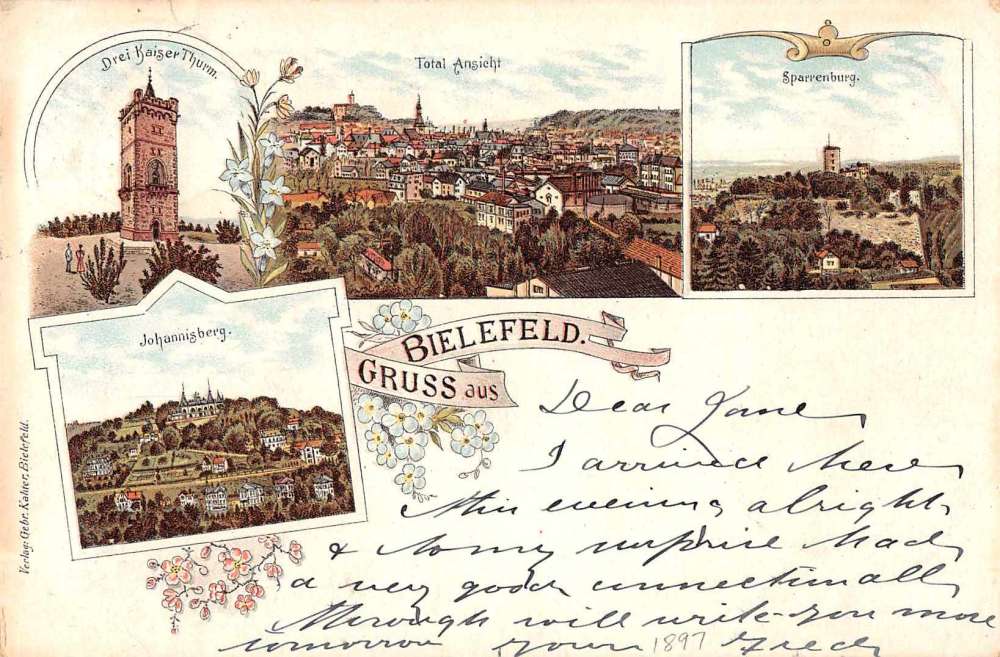 Drei Kaiser Thurm.
Total Ansicht
Sparrenburg.
Johannisberg.
GRUSS aus
BIELEFELD.
Verlag: Gebr. Kahler, Bielefeld.
Dear
I arrived here
this evening alright,
& to my surprise had
a very good connection all
through will write you more
tomorrow your Fred
1897